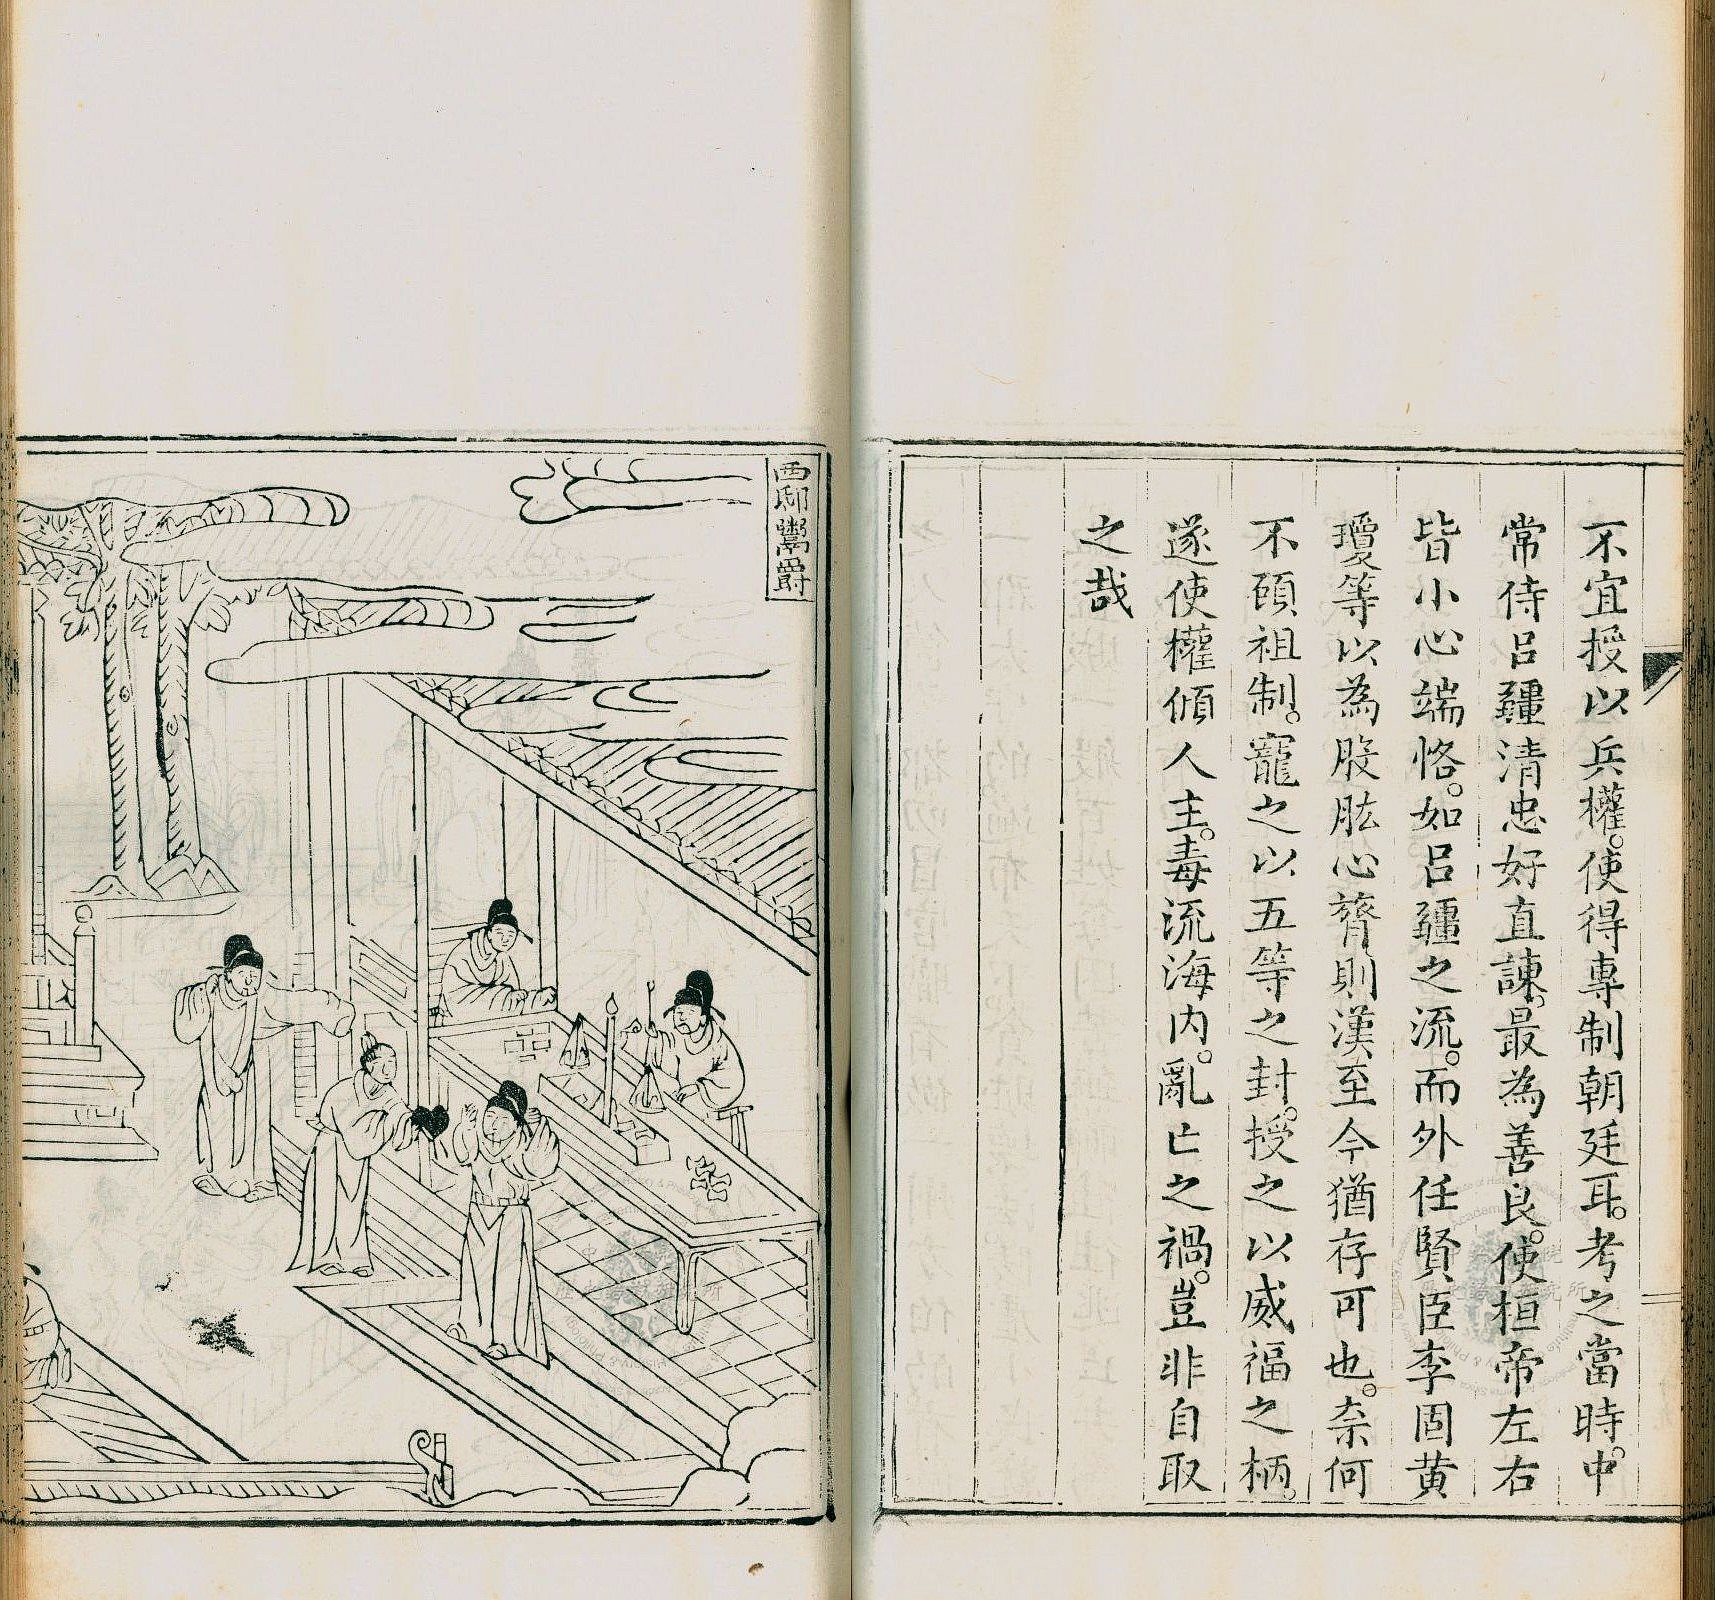 不宜授以兵權。使得專制朝廷耳。考之當時。中
常侍呂彊清忠好直諫。最為善良。使桓帝左右
皆小心端恪。如呂彊之流。而外任賢臣李固黃
瓊等以為股肱心膂則漢至今猶存可也。奈何
不顧祖制。寵之以五等之封。授之以威福之柄。
遂使權傾人主。毒流海內。亂亡之禍。豈非自取
之哉
西邸鬻爵